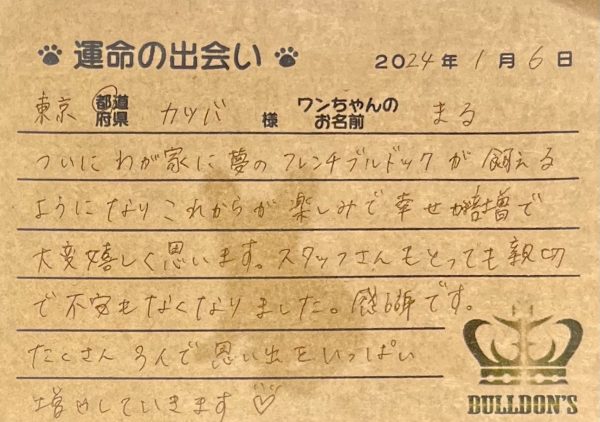 運命の出会い 2024年1月6日
東京 都道府県 カツバ 様 ワンちゃんのお名前 まる
ついにわが家に夢のフレンチブルドックが飼える
ようになりこれからが楽しみで幸せが倍増で
大変嬉しく思います。スタッフさんもとっても親切
で不安もなくなりました。感謝です。
たくさん遊んで思い出をいっぱい
増やしていきます♡
BULLDON'S